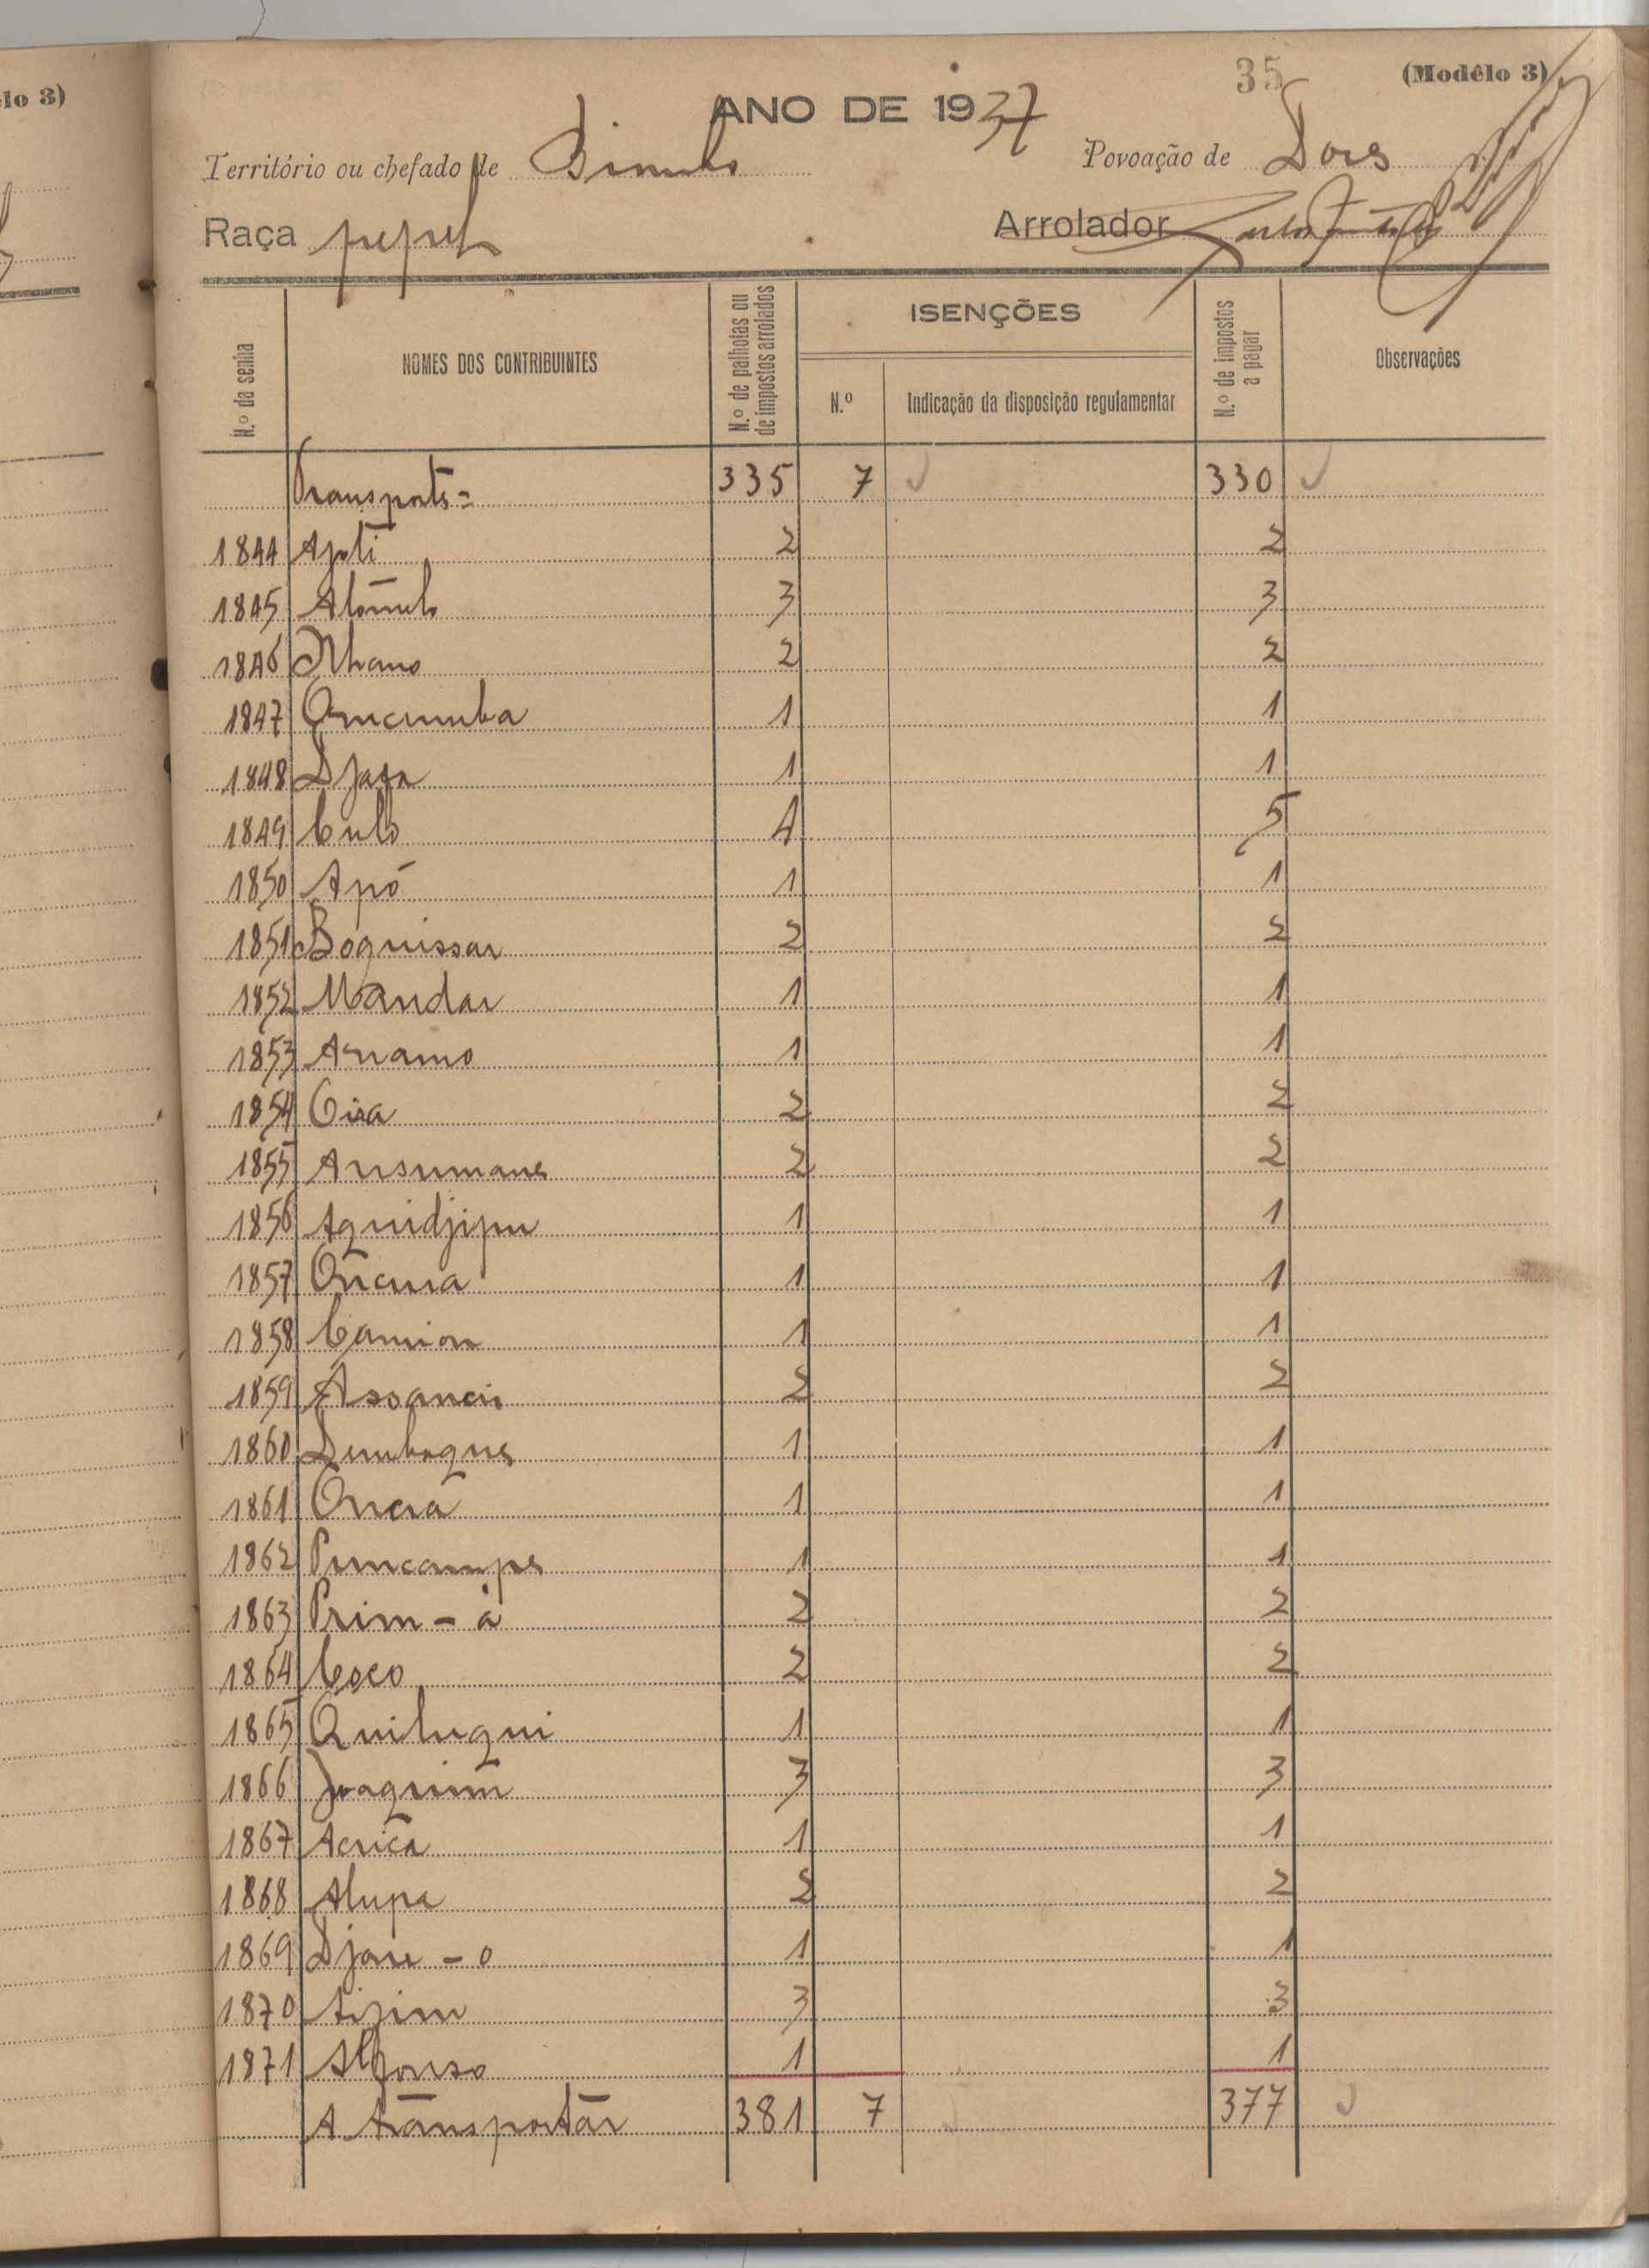 lo 3)
35
(Modêlo 3)
ANO DE 1937
Território ou chefado de Bimbo Povoação de Dois
Raça pepel Arrolador
N.º da senha NOMES DOS CONTRIBUINTES N.º de palhotas ou de impostos arrolados ISENÇÕES N.º Indicação da disposição regulamentar N.º de impostos a pagar Observações
Transporte = 335 7 330
1844 Apoti 2 2
1845 3 3
1846 Nhano 2 2
1847 1 1
1848 Djata 1 1
1849 Culo 4 5
1850 Apó 1 1
1851 Boquissar 2 2
1852 Mandar 1 1
1853 Anamo 1 1
1854 2 2
1855 Ansumane 2 2
1856 Aquidjipu 1 1
1857 1 1
1858 Camion 1 1
1859 2 2
1860 Dembaque 1 1
1861 1 1
1862 Pumcampe 1 1
1863 Prim - á 2 2
1864 Coco 2 2
1865 Quiluqui 1 1
1866 Joaquim 3 3
1867 Acrica 1 1
1868 Alupa 2 2
1869 Djone - o 1 1
1870 3 3
1871 Alfonso 1 1
A transportar 381 7 377